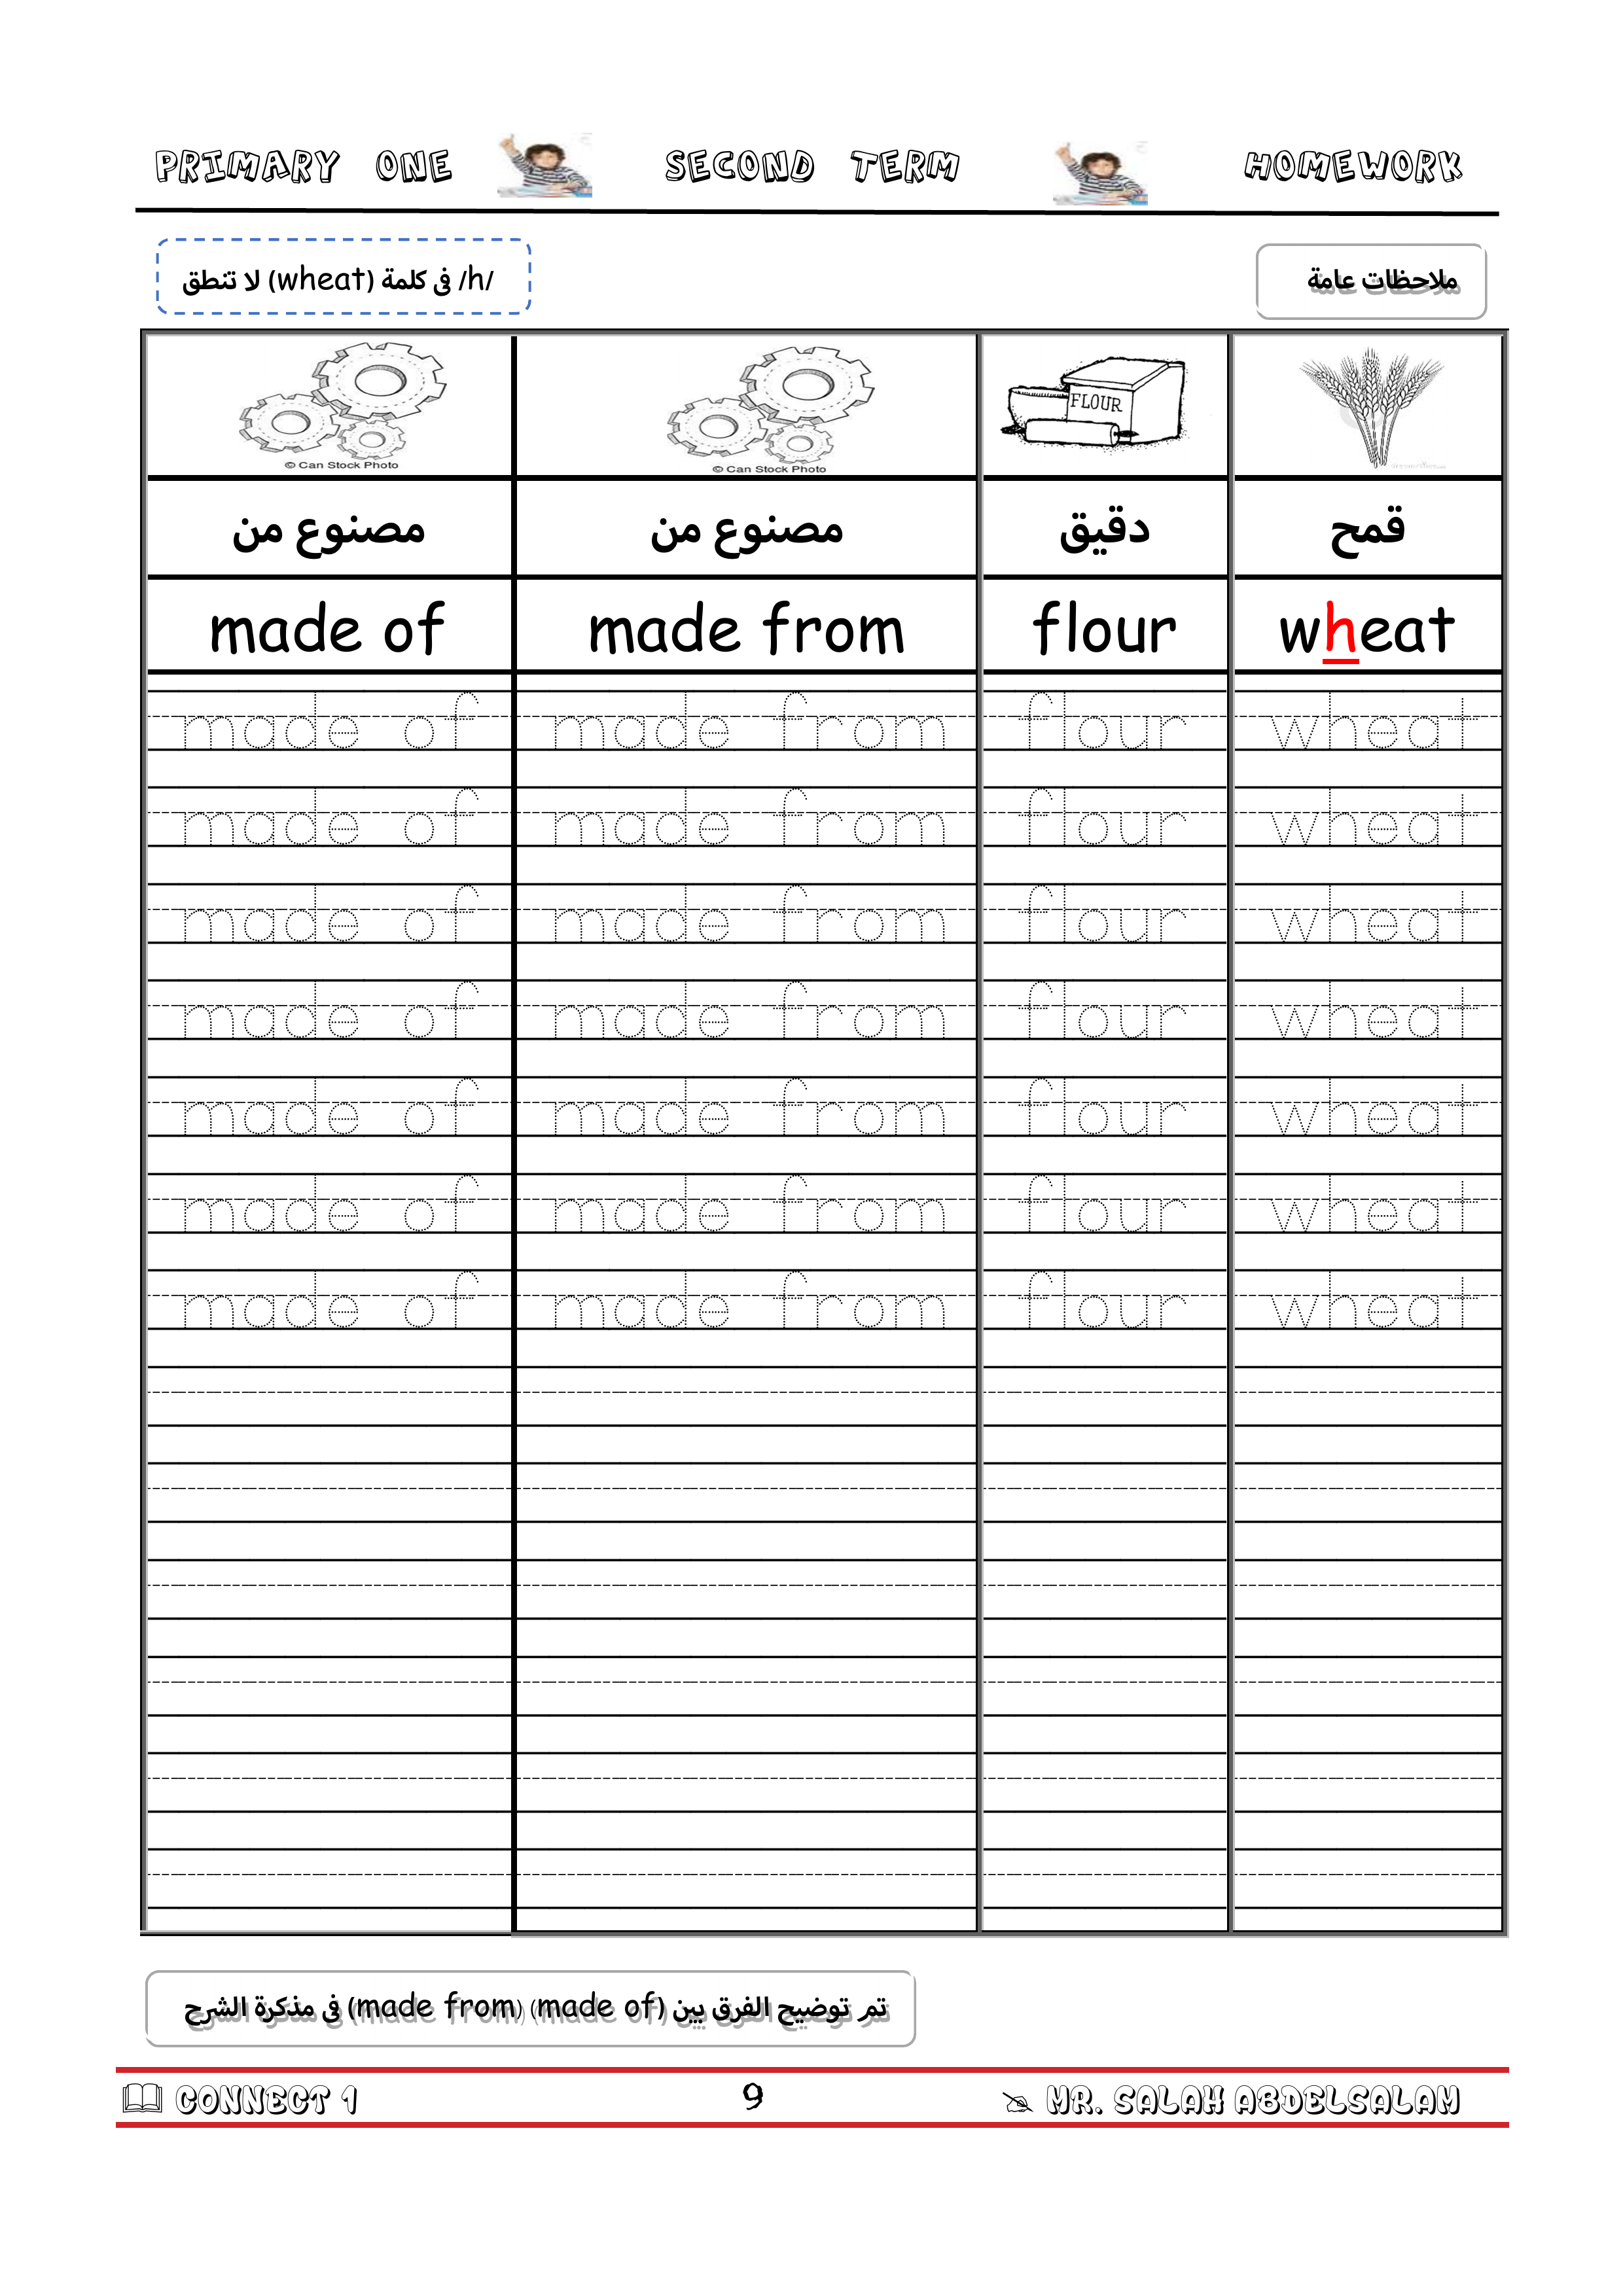 PRIMARY ONE SECOND TERM HOMEWORK
ملاحظات عامة
/h/ فى كلمة (wheat) لا تنطق
© Can Stock Photo © Can Stock Photo FLOUR
مصنوع من مصنوع من دقيق قمح
made of made from flour wheat
made of made from flour wheat
made of made from flour wheat
made of made from flour wheat
made of made from flour wheat
made of made from flour wheat
made of made from flour wheat
made of made from flour wheat
تم توضيح الفرق بين (made of) (made from) فى مذكرة الشرح
CONNECT 1 9 MR. SALAH ABDELSALAM